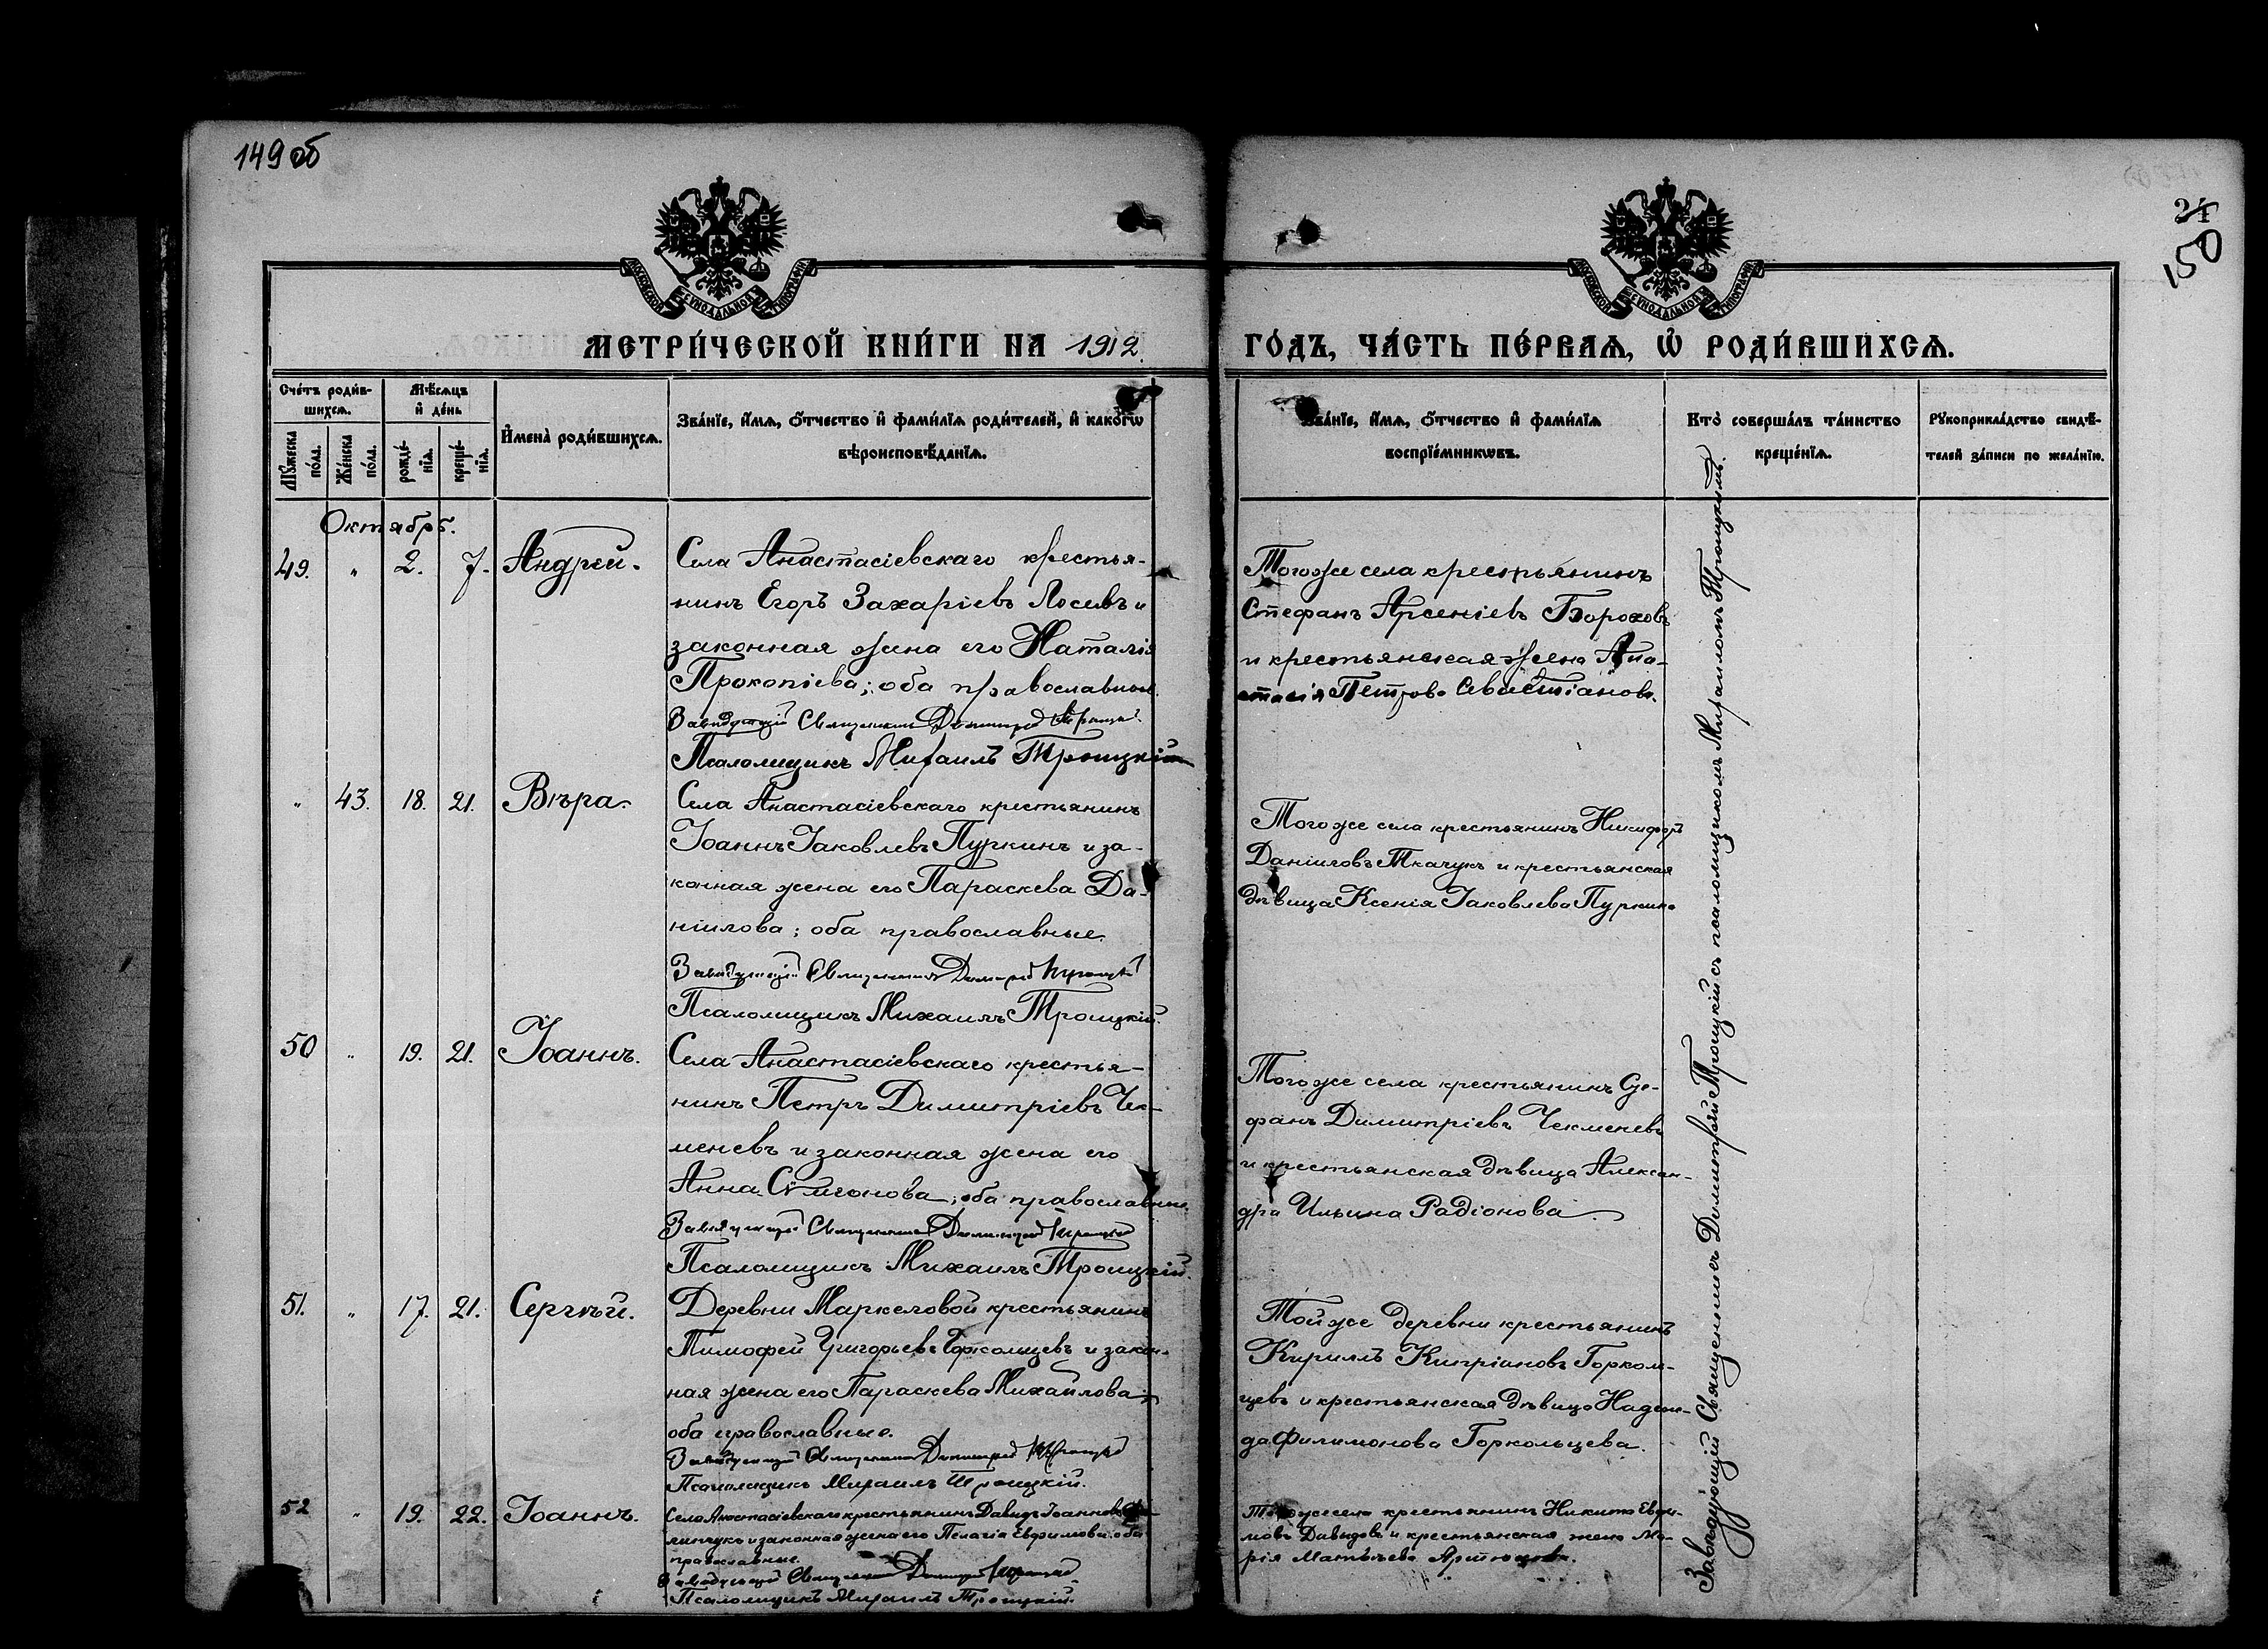 149 об
24
150
МОСКОВСКОЙ СѴНОДАЛЬНОЙ ТИПОГРАФІИ
МОСКОВСКОЙ СѴНОДАЛЬНОЙ ТИПОГРАФІИ
МЕТРИ́ЧЕСКОЙ КНИ́ГИ НА 1912.
ГО́ДЪ, ЧА́СТЬ ПЕ́РВАѦ, Ѡ҆ РОДИ́ВШИХСѦ.
Сче́тъ роди́в-
шихсѧ.
Мѣ́сѧцъ
и҆ де́нь
Мꙋ́жеска
по́ла.
Же́нска
по́ла.
рожде́-
нїѧ.
креще́-
нїѧ.
И҆мена̀ роди́вшихсѧ.
Зва́нїе, и҆́мѧ, ѻ҆́тчество и҆ фами́лїѧ роди́телей, и҆ како́гѡ
вѣроисповѣ́данїѧ.
Зва́нїе, и҆́мѧ, ѻ҆́тчество и҆ фами́лїѧ
воспрїе́мникѡвъ.
Кто̀ соверша́лъ та́инство
креще́нїѧ.
Рꙋкоприкла́дство свидѣ́-
телей за́писи по жела́нїю.
Октябрь.
49. " 2. 7. Андрей.
Села Анастасіевскаго крестья-
нинъ Егоръ Захаріевъ Лосевъ и
законная жена его Наталія
Прокопіева; оба православные.
Завѣдующій Священникъ Димитрій Троицкій
Псаломщикъ Михаилъ Троицкій
Тогоже села крестьянинъ
Стефанъ Арсеніевъ Борохов
и крестьянская жена Ана-
стасія Петрова Савастіанова.
" 43. 18. 21. Вѣра.
Села Анастасіевскаго крестьянинъ
Іоаннъ Іаковлевъ Пуркинъ и за-
конная жена его Параскева Да-
ніилова; оба православные.
Завѣдующій Священникъ Димитрій Троицкій
Псаломщикъ Михаилъ Троицкій.
Тогоже села крестьянинъ Никифоръ
Даніиловъ Ткачукъ и крестьянская
дѣвица Ксенія Іаковлева Пуркина
50 " 19. 21. Іоаннъ.
Села Анастасіевскаго крестья-
нинъ Петръ Димитріевъ Чек-
меневъ и законная жена его
Анна Сѵмеонова; оба православные.
Завѣдующій Священникъ Димитрій Троицкій
Псаломщикъ Михаилъ Троицкій.
Тогоже села крестьянинъ Сте-
фанъ Димитріевъ Чекменевъ
и крестьянская дѣвица Алексан-
дра Ильина Радіонова.
51. " 17. 21. Сергѣй.
Деревни Маркеловой крестьянинъ
Тимофей Григорьевъ Горкольцевъ и закон-
ная жена его Параскева Михаилова;
оба православные.
Завѣдующій Священникъ Димитрій Троицкій
Псаломщикъ Михаилъ Троицкій.
Тойже деревни крестьянинъ
Кириллъ Кипріановъ Горколь-
цевъ и крестьянская дѣвица Надеж-
да Филимонова Горкольцева.
52 " 19. 22. Іоаннъ.
Села Анастасіевскаго крестьянинъ Давидъ Іоанновъ
липчукъ и законная жена его Пелагія Евфимова; оба
православные.
Завѣдующій Священникъ Димитрій Троицкій
Псаломщикъ Михаилъ Троицкій.
Тогоже села крестьянинъ Никита Евфи-
мовъ Давыдовъ и крестьянская жена Ма-
рія Матѳеева
Завѣдующій Священникъ Димитрій Троицкій съ псаломщикомъ Михаиломъ Троицкимъ.